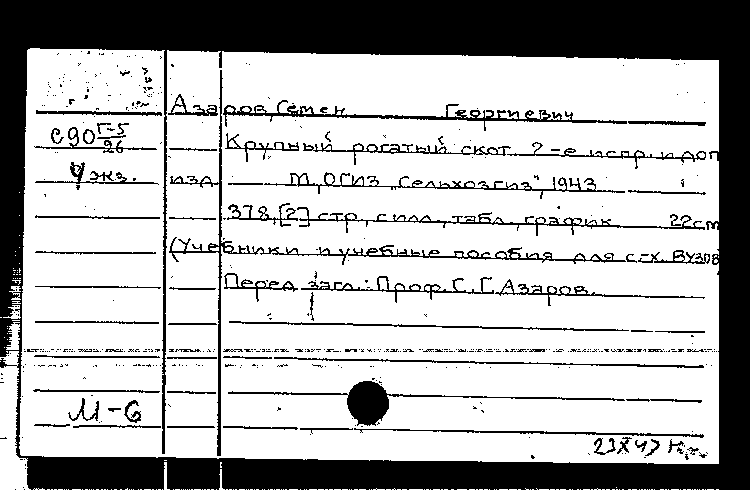 Азаров, Семен Георгиевич
С90 Г-5/26
Крупный рогатый скот. 2-е испр. и доп
4 экз.
изд. М., ОГИЗ „Сельхозгиз", 1943
378, [2] стр., с илл., табл., график. 22см
(Учебники и учебные пособия для с-х. ВУЗОВ)
Перед загл.: Проф. С. Г. Азаров.
М-6
23X47